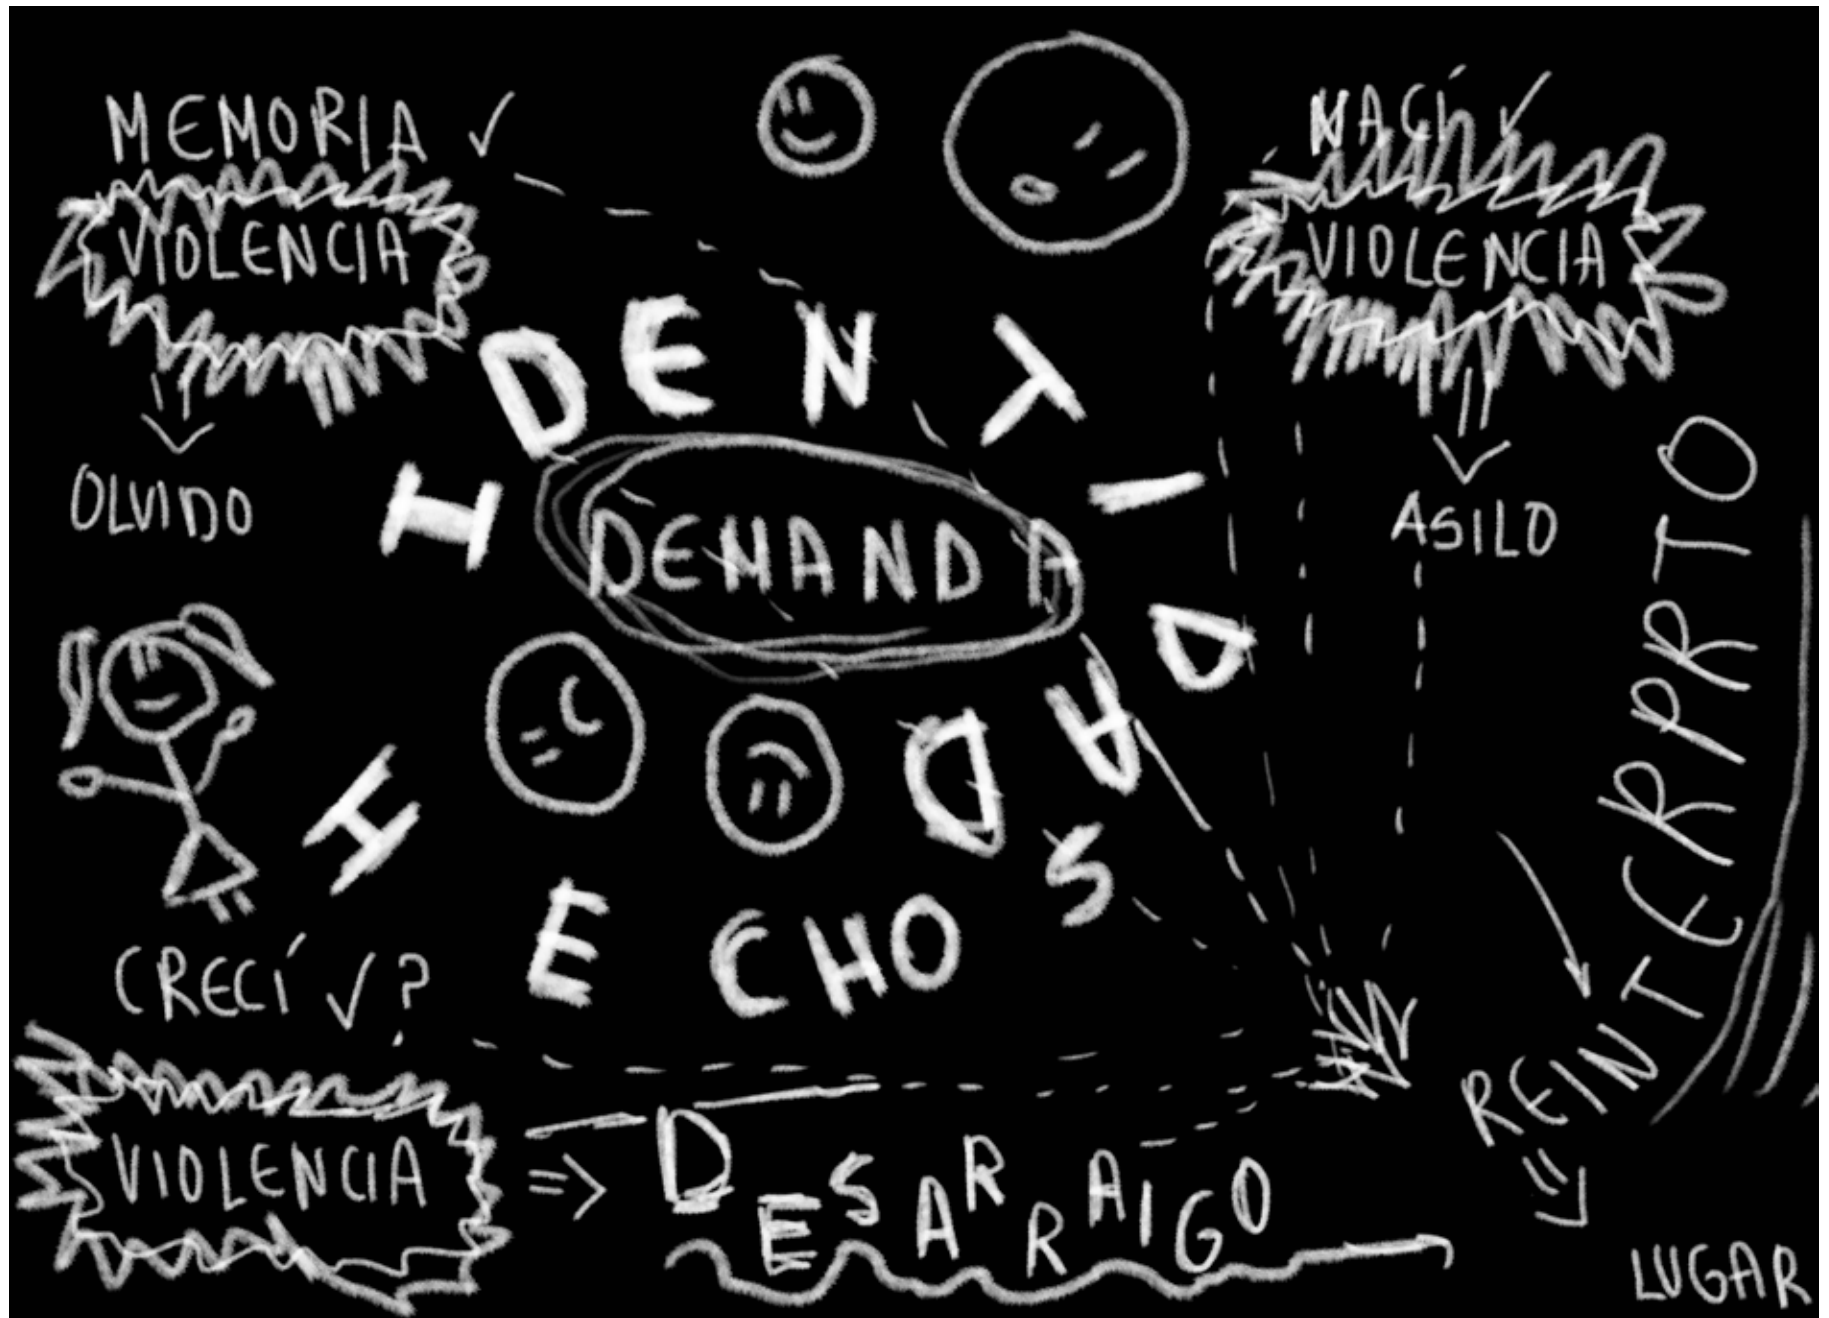 MEMORIA ✓
VIOLENCIA
OLVIDO
NACÍ ✓
VIOLENCIA
ASILO
IDENTIDAD
DEMANDA
HECHOS
CRECÍ ✓ ?
VIOLENCIA
=> DESARRAIGO
REINTERPRTO
LUGAR